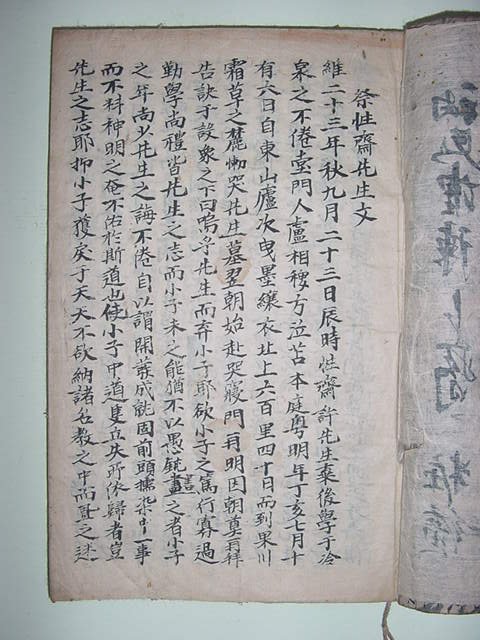 祭性齋先生文
維二十三年秋九月二十三日辰時性齋許先生棄後學于冷
泉之不倦堂門人盧相稷方泣苫本庭粤明年丁亥七月十
有六日自東山廬次曳墨縗衣北上六百里四十日而到果川
霜草之麓慟哭先生墓翌朝始赴哭寢門有明因朝奠再拜
告訣于設象之下曰嗚乎先生而弃小子耶欲小子之篤行寡過
勤學尚禮皆先生之志而小子未之能猶不以愚鈍之者小子
之年尚少先生之誨不倦自以謂開發成就固前頭擩染中一事
而不料神明之奄不佑於斯道也使小子中道隻立失所依歸者豈
先生之志耶抑小子獲戾于天天不欲納諸名教之中而之迷